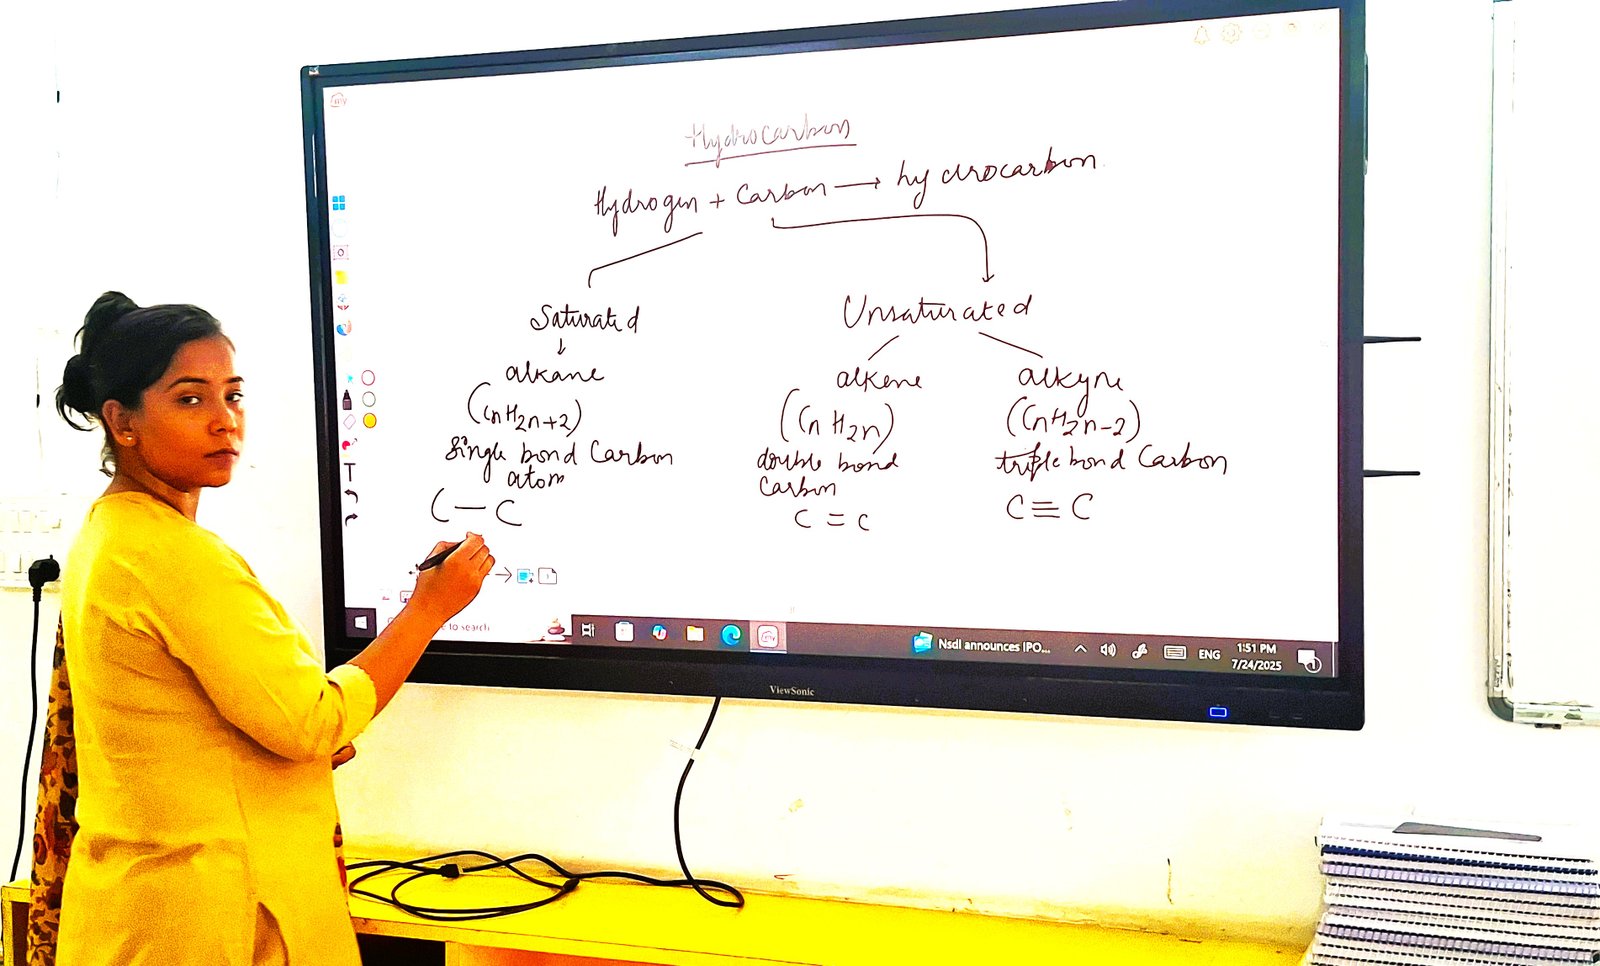 my
Hydrocarbon
Hydrogen + Carbon → hydrocarbon
Saturated
Unsaturated
↓
alkane
alkene
alkyne
(CnH2n+2)
(CnH2n)
(CnH2n-2)
single bond Carbon
atom
double bond
Carbon
triple bond Carbon
C — C
C = C
C ≡ C
T
to search
Nsdl announces IPO...
ENG
1:51 PM
7/24/2025
1
ViewSonic